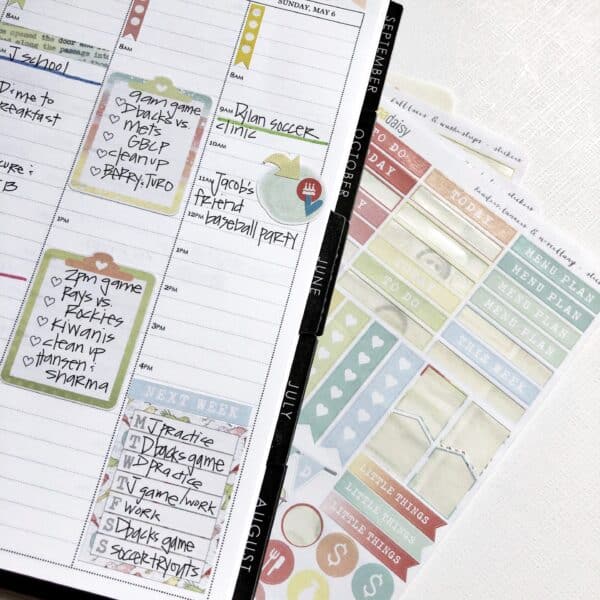 SUNDAY, MAY 6
8AM
J school
Dime to
breakfast
9am game
Dbacks vs.
mets
GBCP
clean up
BERRY, JURO
1PM
2pm game
Rays vs.
Rockies
Kiwanis
clean up
Hansen &
Sharma
8AM
9AM
Dylan soccer
clinic
10AM
11AM
Jacob's
friend
12PM
baseball party
1PM
2PM
3PM
4PM
NEXT WEEK
M J practice
T Dbacks game
W D practice
T J game/work
F work
S Dbacks game
S soccer tryouts
SEPTEMBER
OCTOBER
JUNE
JULY
AUGUST
daisy
TO DO
TODAY
TO DO
MENU PLAN
MENU PLAN
MENU PLAN
MENU PLAN
THIS WEEK
LITTLE THINGS
LITTLE THINGS
LITTLE THINGS
$
$